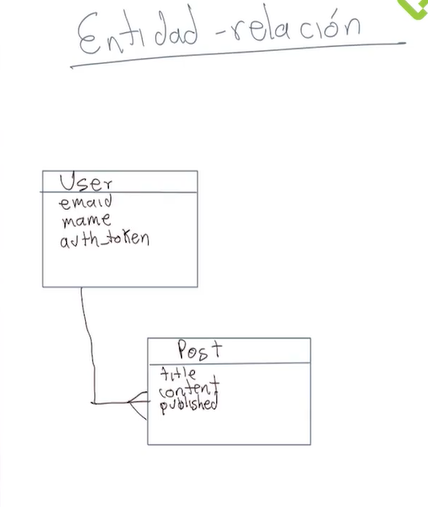 Entidad-relación
User
emaid
mame
auth_token
Post
title
content
published